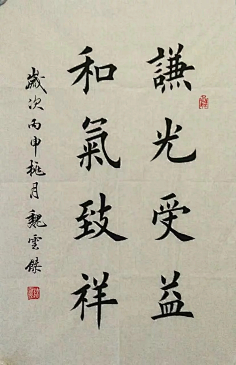 謙光受益
和氣致祥
歲次丙申桃月魏雲傑